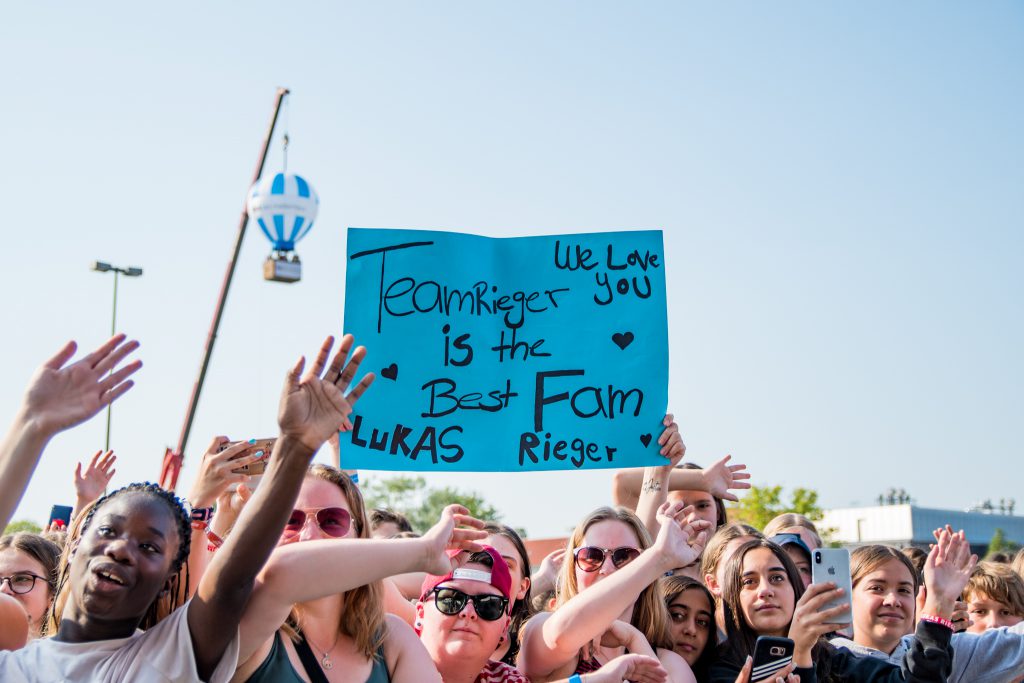 We Love
you
TeamRieger
is the
Best Fam
LUKAS Rieger